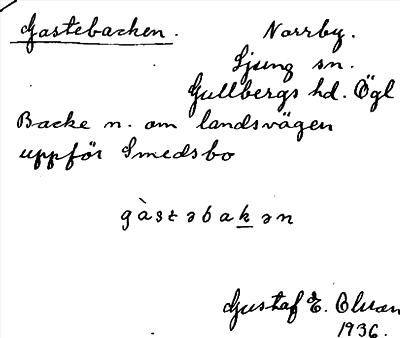 Gastebacken. Norrby.
Ljung sn.
Gullbergs hd. Ögl
Backe n. om landsvägen
uppför Smedsbo
gàstəbakən
Gustaf E. Olsson
1936.